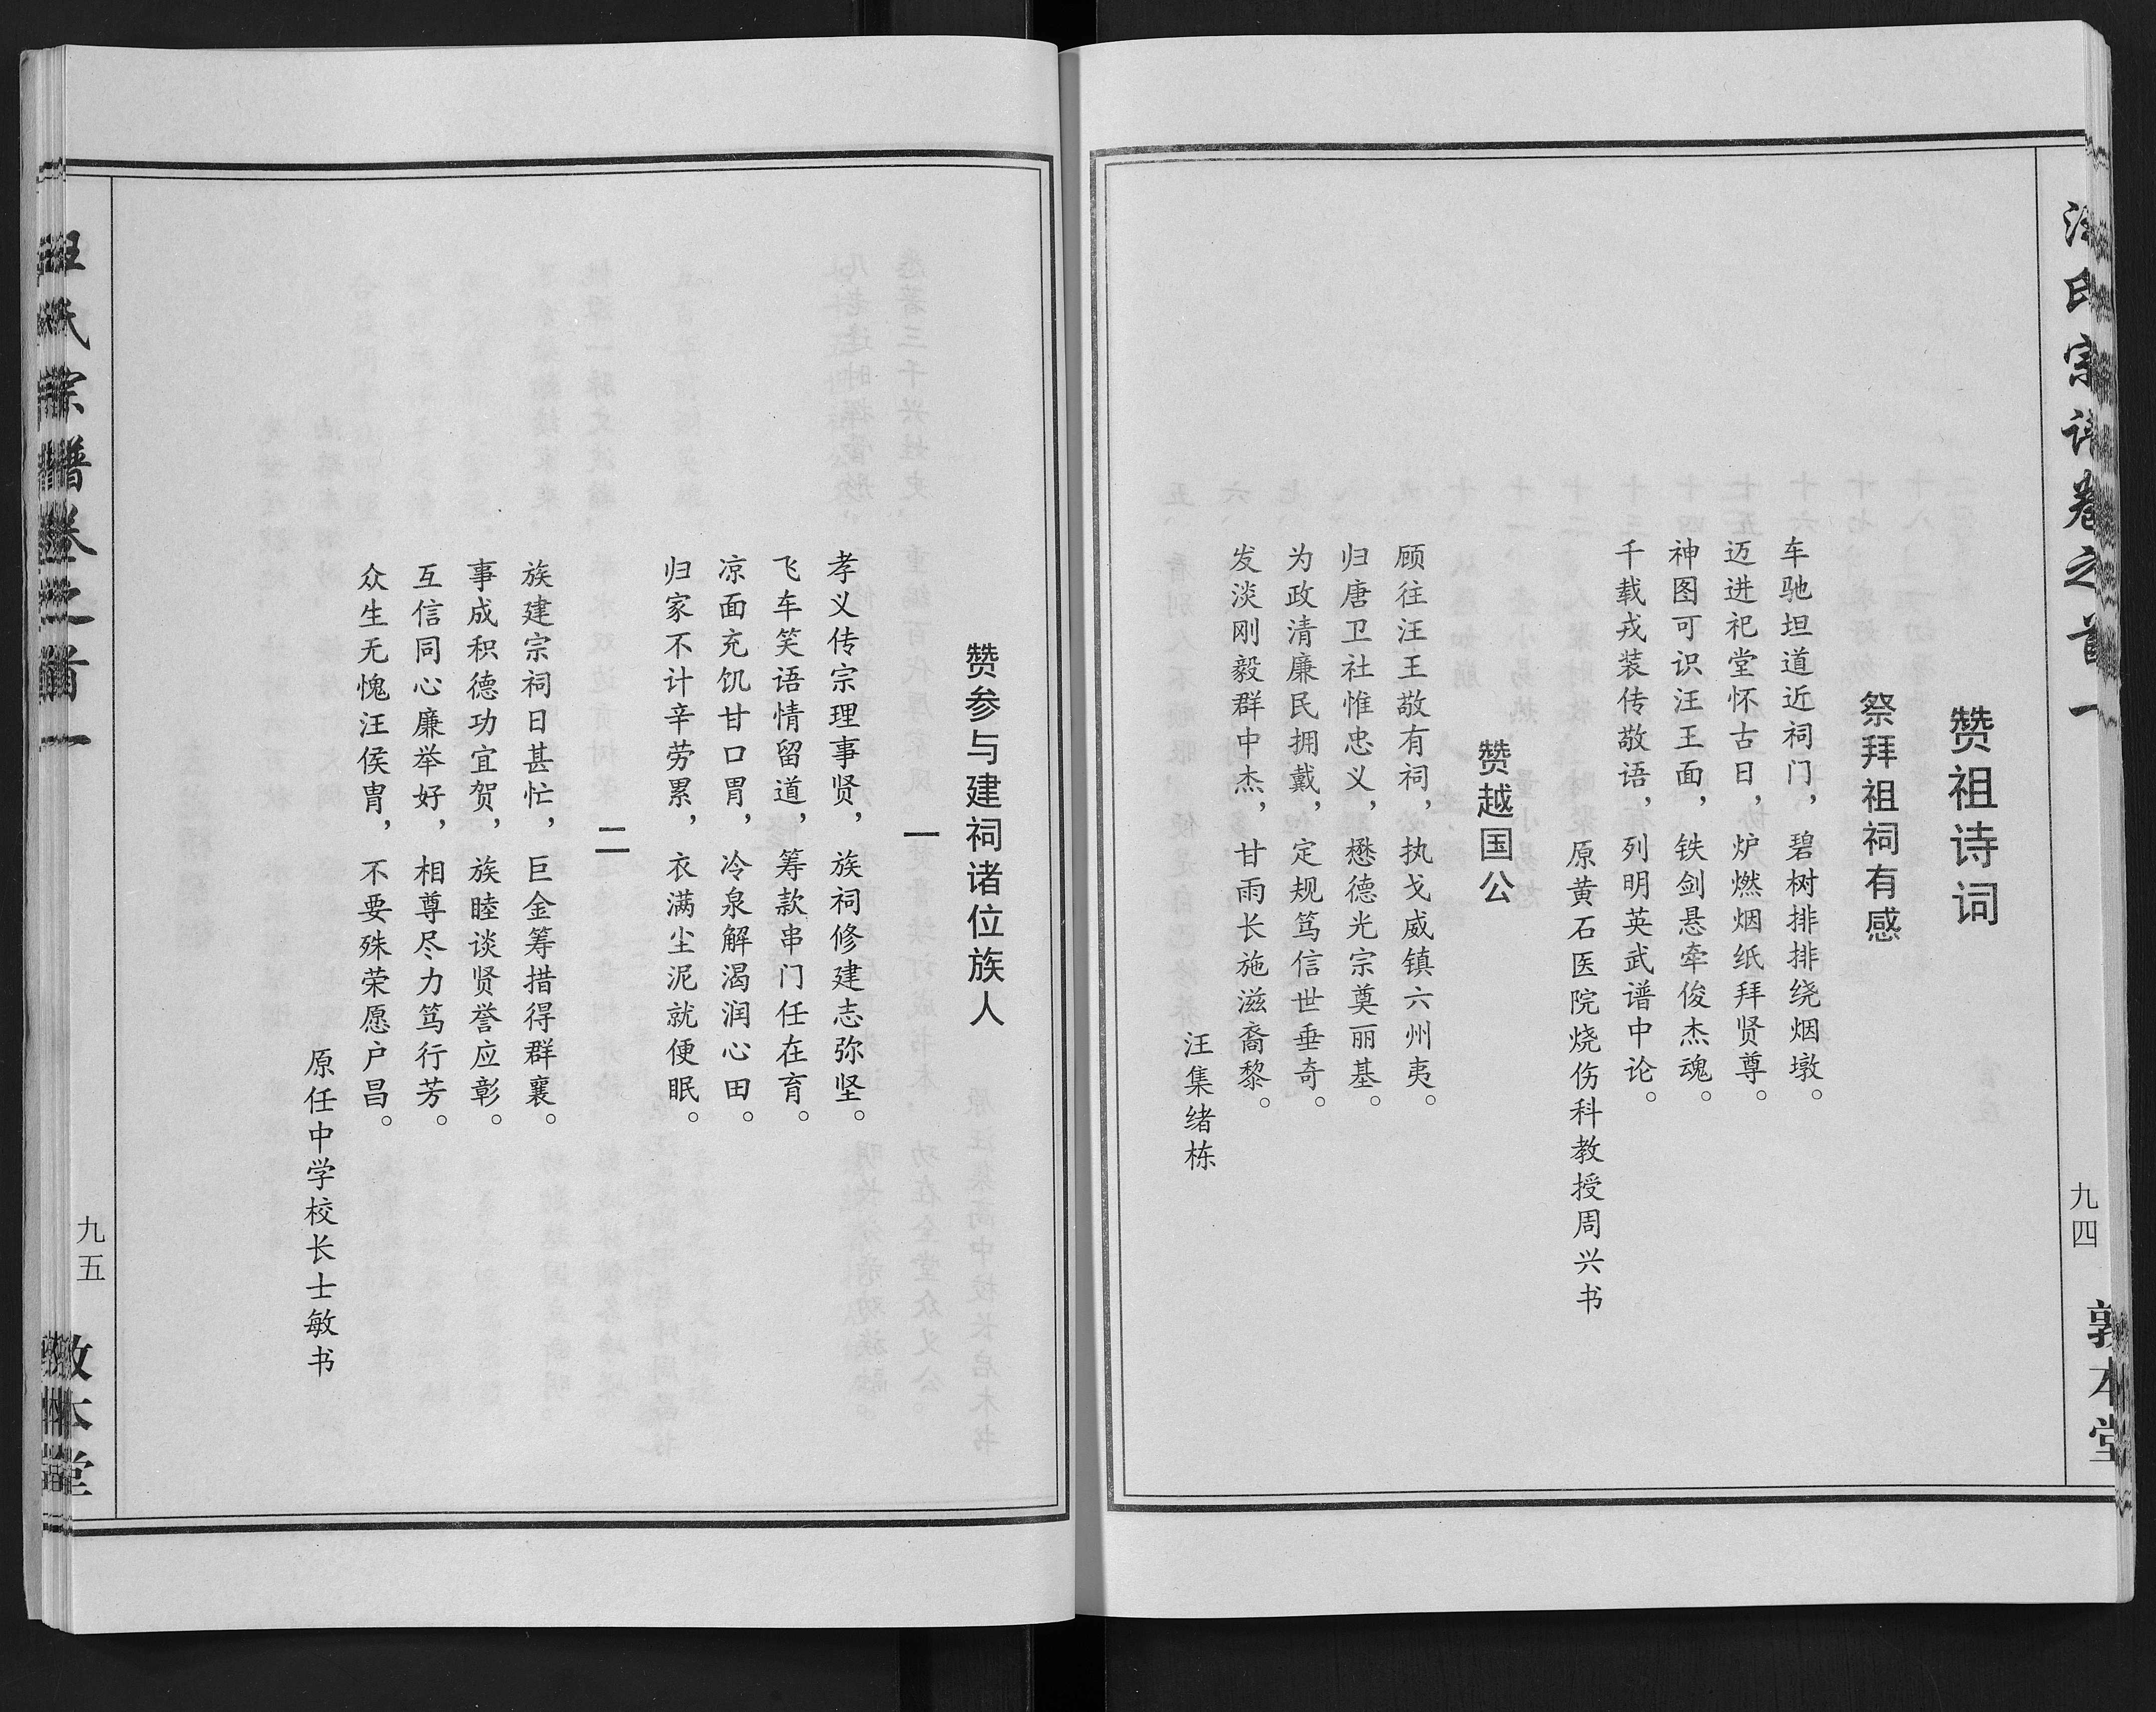 汪氏宗谱卷之首一
九四
敦本堂
赞祖诗词
祭拜祖祠有感
车驰坦道近祠门，碧树排排绕烟墩。
迈进祀堂怀古日，炉燃烟纸拜贤尊。
神图可识汪王面，铁剑悬牵俊杰魂。
千载戎装传敬语，列明英武谱中论。
原黄石医院烧伤科教授周兴书
赞越国公
顾往汪王敬有祠，执戈威镇六州夷。
归唐卫社惟忠义，懋德光宗奠丽基。
为政清廉民拥戴，定规笃信世垂奇。
发淡刚毅群中杰，甘雨长施滋裔黎。
汪集绪栋
赞参与建祠诸位族人
一
孝义传宗理事贤，族祠修建志弥坚。
飞车笑语情留道，筹款串门任在育。
凉面充饥甘口胃，冷泉解渴润心田。
归家不计辛劳累，衣满尘泥就便眠。
二
族建宗祠日甚忙，巨金筹措得群襄。
事成积德功宜贺，族睦谈贤誉应彰。
互信同心廉举好，相尊尽力笃行芳。
众生无愧汪侯胄，不要殊荣愿户昌。
原任中学校长士敏书
汪氏宗谱卷之首一
九五
敦本堂